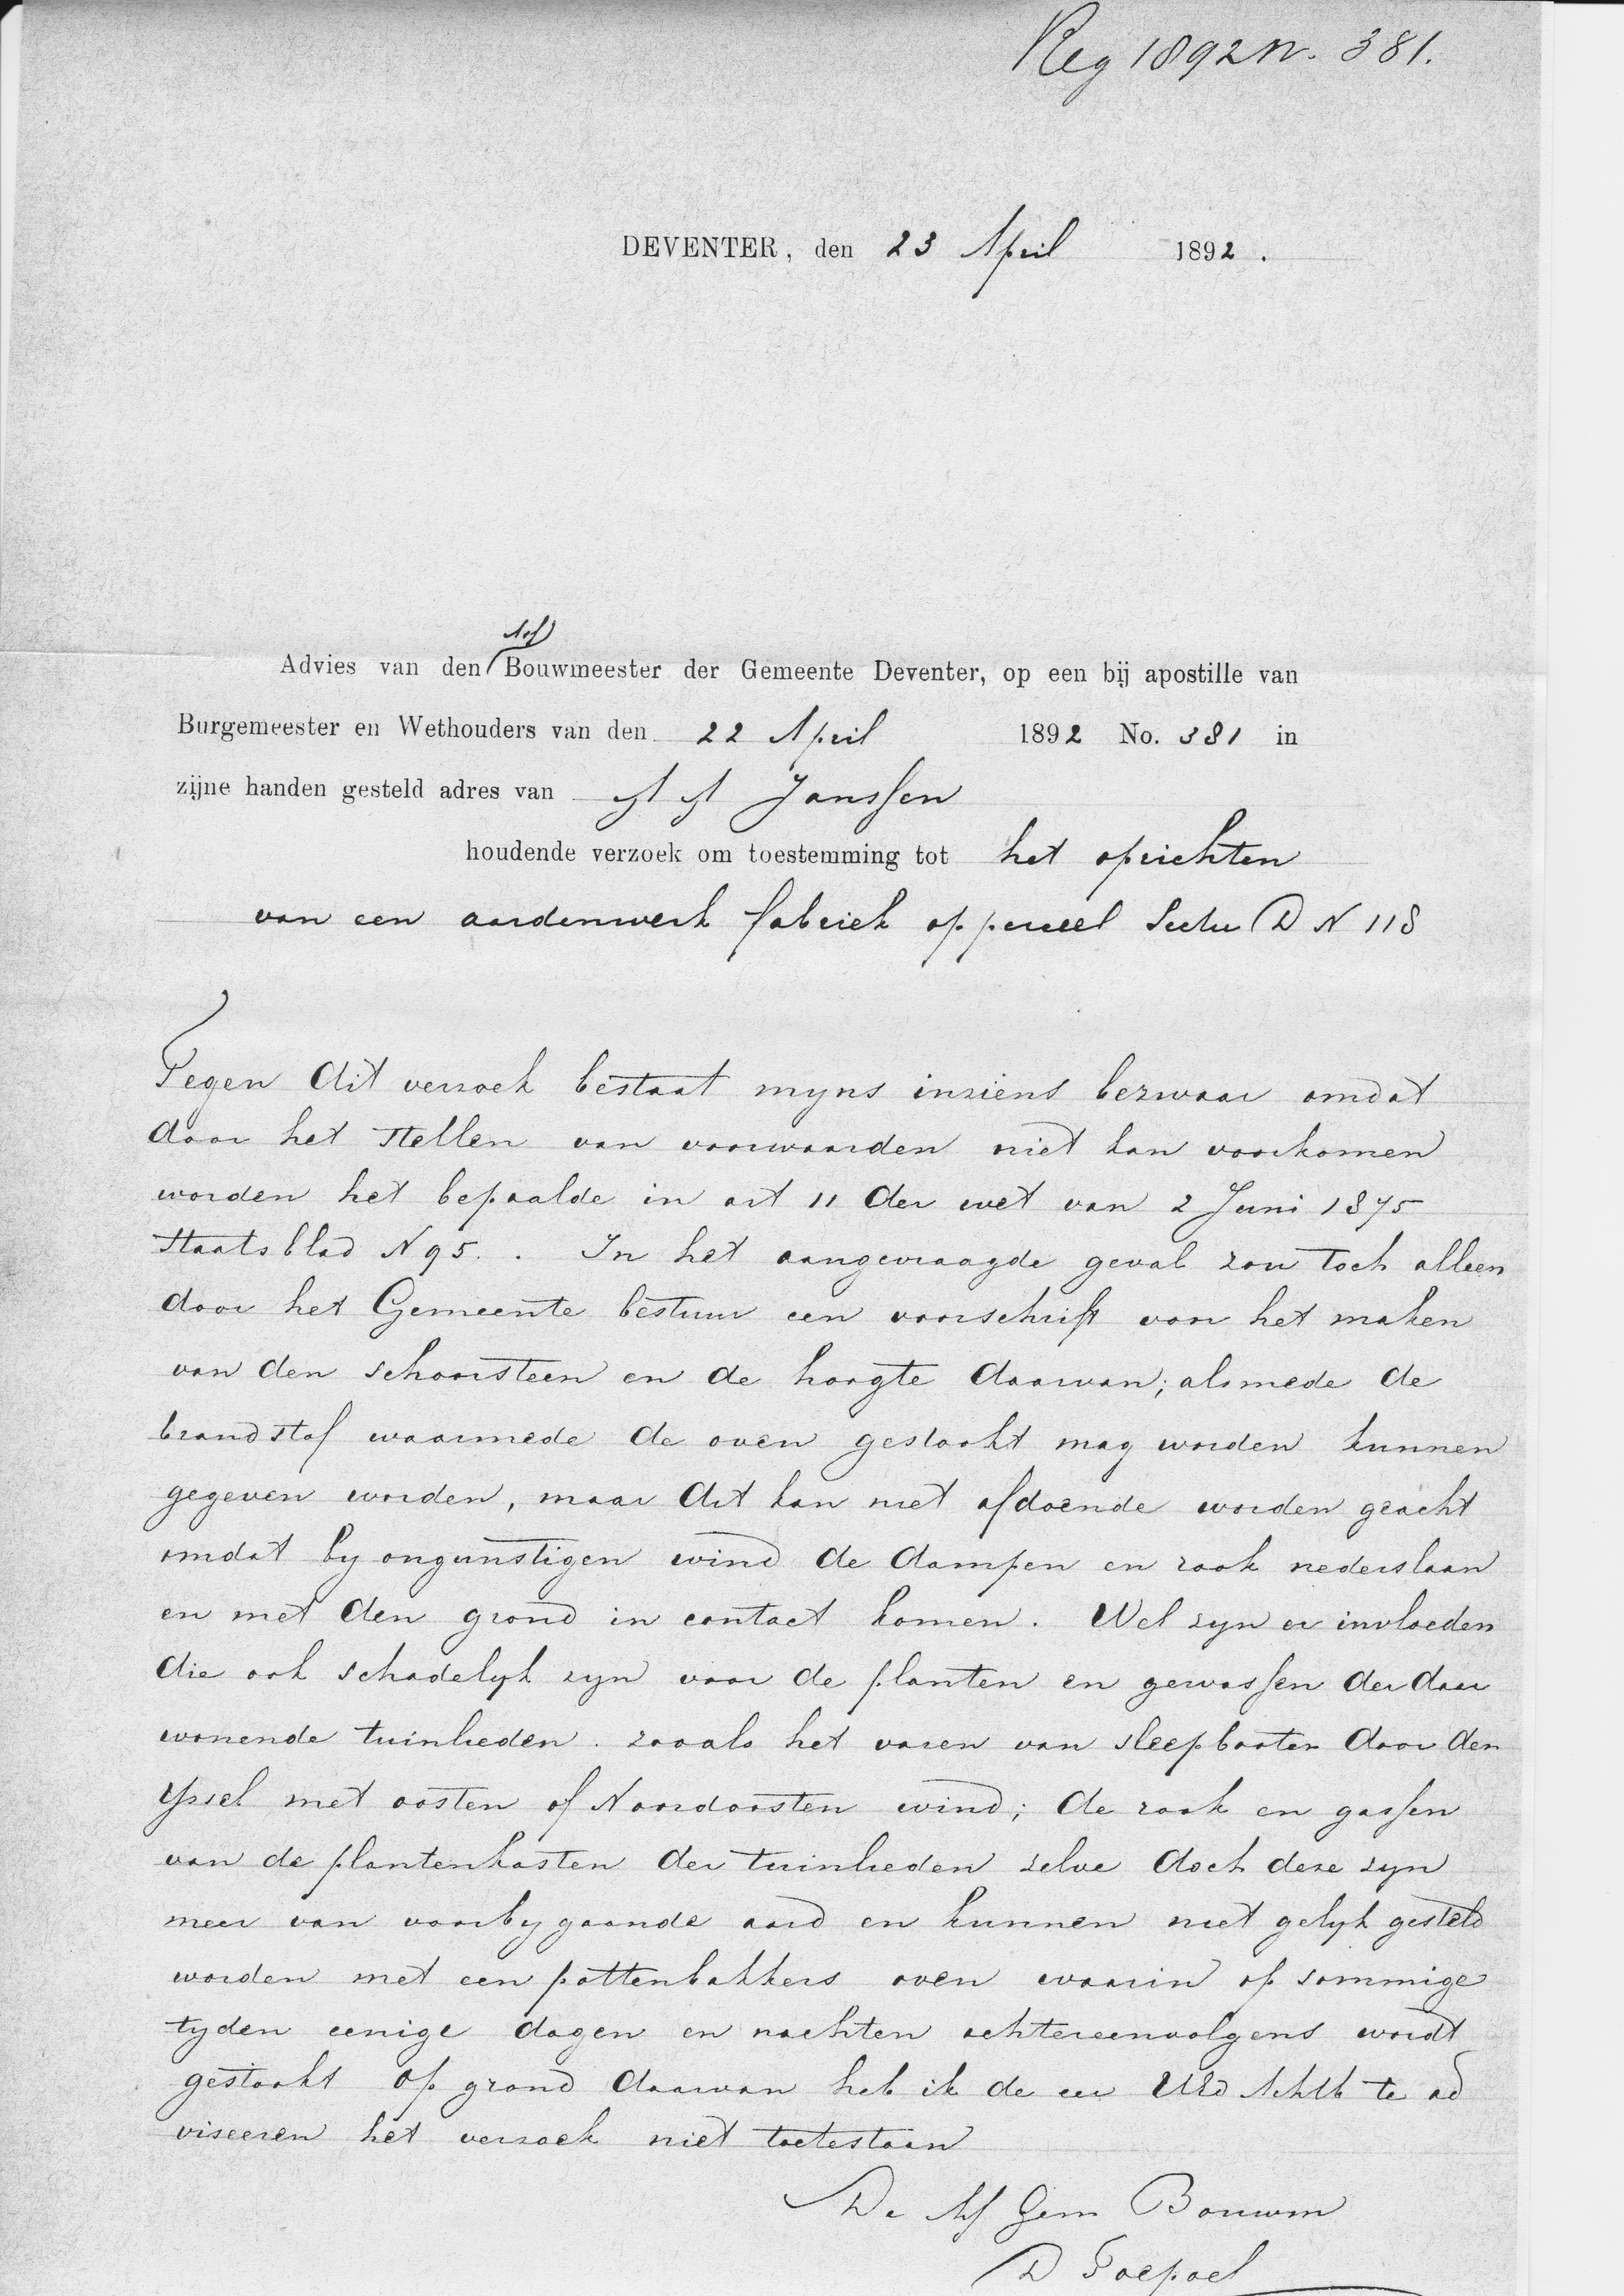 Reg 1892 n. 381.
DEVENTER, den 23 April 1892.
Advies van den Bouwmeester der Gemeente Deventer, op een bij apostille van
Burgemeester en Wethouders van den 22 April 1892 No. 381 in
zijne handen gesteld adres van Janssen
houdende verzoek om toestemming tot het oprichten
van een aardenwerk fabriek op perceel Sectie D N 118
Tegen dit verzoek bestaat myns inziens bezwaar omdat
door het stellen van voorwaarden niet kan voorkomen
worden het bepaalde in art 11 der wet van 2 Juni 1875
Staatsblad N 95. . In het aangevraagde geval zou toch alleen
door het Gemeente bestuur een voorschrift voor het maken
van den schoorsteen en de hoogte daarvan; alsmede de
brandstof waarmede de oven gestookt mag worden kunnen
gegeven worden, maar dit kan niet afdoende worden geacht
omdat by ongunstigen wind de dampen en rook nederslaan
en met den grond in contact komen. Wel zyn er invloeden
die ook schadelyk zyn voor de planten en gewassen der daar
wonende tuinlieden. zooals het varen van sleepbooten door den
Yssel met oosten of Noordoosten wind; de rook en gassen
van de plantenkasten der tuinlieden zelve doch deze zyn
meer van voorbygaande aard en kunnen niet gelyk gesteld
worden met een pottenbakkers oven waarin op sommige
tyden eenige dagen en nachten achtereenvolgens wordt
gestookt Op grond daarvan heb ik de eer UEd Achtb te ad
viseeren het verzoek niet toetestaan
De Gem Bouwm
D